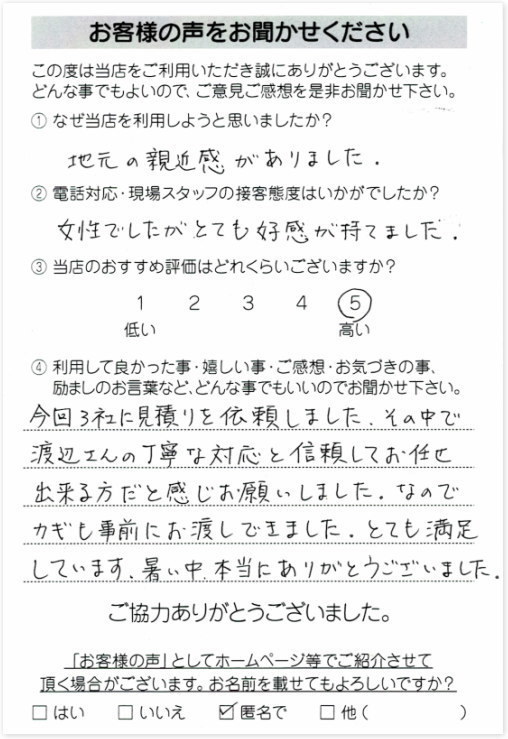 お客様の声をお聞かせください
この度は当店をご利用いただき誠にありがとうございます。
どんな事でもよいので、ご意見ご感想を是非お聞かせ下さい。
① なぜ当店を利用しようと思いましたか？
地元の親近感がありました.
② 電話対応・現場スタッフの接客態度はいかがでしたか？
女性でしたがとても好感が持てました.
③ 当店のおすすめ評価はどれくらいございますか？
1 2 3 4 5
低い 高い
④ 利用して良かった事・嬉しい事・ご感想・お気づきの事、
励ましのお言葉など、どんな事でもいいのでお聞かせ下さい。
今回3社に見積りを依頼しました. その中で
渡辺さんの丁寧な対応と信頼してお任せ
出来る方だと感じお願いしました. なので
カギも事前にお渡しできました. とても満足
しています、暑い中、本当にありがとうございました.
ご協力ありがとうございました。
「お客様の声」としてホームページ等でご紹介させて
頂く場合がございます。お名前を載せてもよろしいですか？
□ はい □ いいえ ☑ 匿名で □ 他（ ）